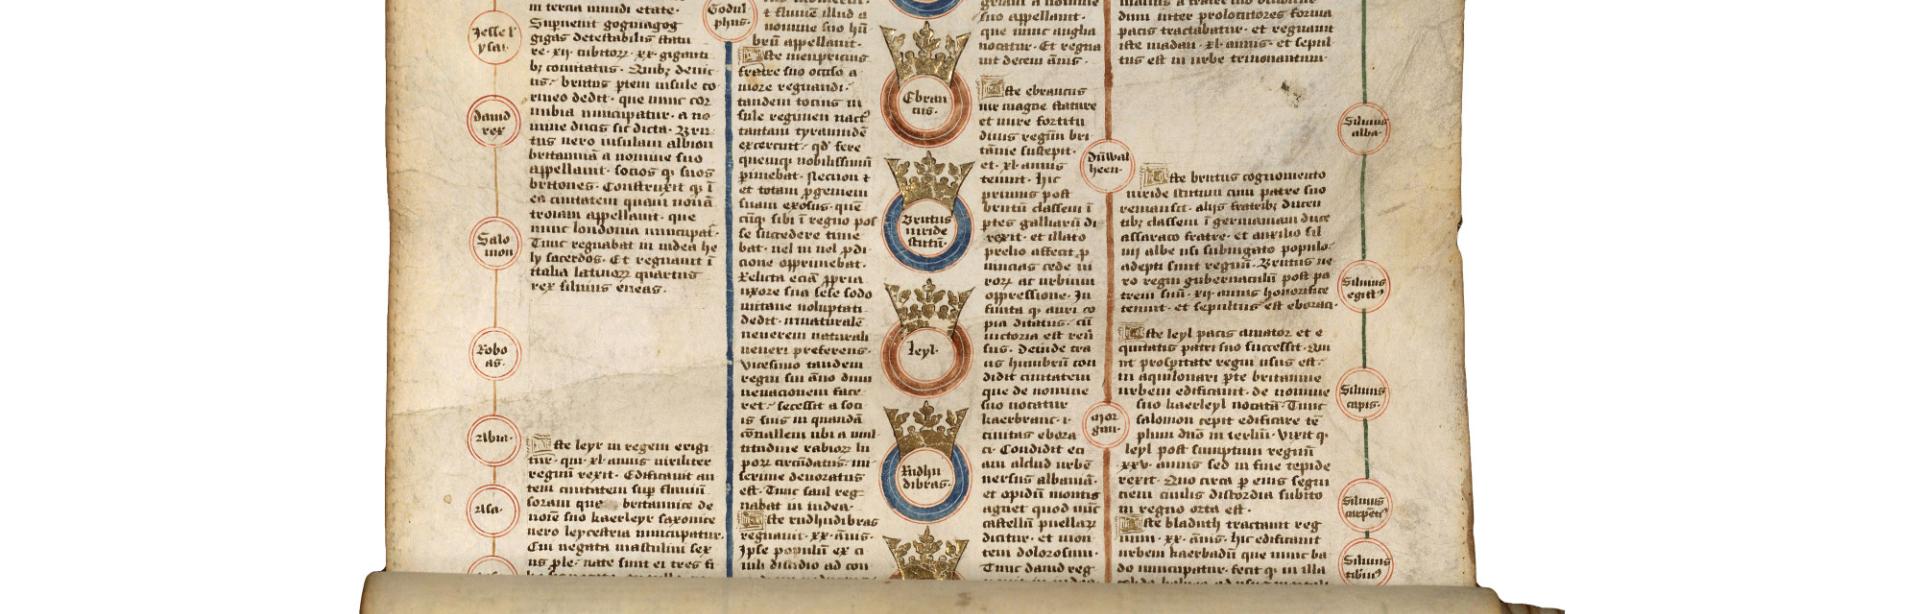 Jesse l'
ysai
david
rex
Salo
mon
Robo
as
Abia
Asa
in tercia mundi etate
Supuenit gogmagog
gigas detestabilis statu
re xij cubitorz xx giganti
bz comitatus Quibz devic
tis brutus ptem insule co
rineo dedit que nunc cor
nubia nuncupatur a no
mine ducis sic dicta Bru
tus uero insulam albion
britanniā a nomine suo
appellauit socios qz suos
britones Construxit qz ī
ea ciuitatem quam nouā
troiam appellauit que
nunc londonia nuncupat'
Tunc regnabat in iudea he
ly sacerdos Et regnauit ī
italia latinorz quartus
rex siluius eneas
Iste leyr in regem erigi
tur qui xl annis uiriliter
regnū rexit Edificauit au
tem ciuitatem sup fluuiū
soram que britannice de
noīe suo kaerleyr saxonice
uero leycestria nuncupatur
Cui negata masculini sex
us ple nate sunt ei tres fi
Godul
phus
t fluuiū illud a
nomine suo hū
brū appellauit
Iste menpricius
fratre suo occiso a
more regnandi
tandem tocius in
sule regimen nact'
tantam tyrannidē
exercuit qd fere
quemqz nobilissimū
pimebat Necnon t
et totam pgeniem
suam exosus quē
cūqz sibi ī regno pos
se succedere time
bat uel in uel pdi
cione opprimebat
Relicta eciā ppria
uxore sua sese sodo
mitane uoluptati
dedit innaturalē
uenerem naturali
ueneri preferens
Vicesimo tandem
regni sui āno dum
uenacionem face
ret secessit a soci
is suis in quandā
conuallem ubi a mul
titudine rabiorz lu
porz circūdatus mi
serime deuoratus
est Tunc saul reg
nabat in iudea
Iste rudhudibras
regnauit xx ānis
Ipse populū ex ci
uili discidio ad con
Ebran
cus
Brutus
uiride
scutū
leyl
Rudhu
dibras
suo appellauit
que nunc anglia
uocatur Et regna
uit decem ānis
Iste ebrancus
uir magne stature
et mire fortitu
dinis regnū bri
tānie suscepit
et xl annis
tenuit hic
primus post
brutū classem ī
ptes galliarū di
rexit et illato
prelio affecit p
uincias cede ui
rorz ac urbium
oppressione In
finita qz auri co
pia ditatus cū
uictoria est reū
sus Deinde tra
ns humbrū con
didit ciuitatem
que de nomine
suo uocatur
kaerbranc i
ciuitas ebora
ci Condidit eci
am aldud urbē
uersus albaniā
et opidū montis
agnet quod nūc
castellū puellarz
dicitur et mon
tem dolorosum
Tunc dauid reg
Dūwal
heen
Mor
gan
dum inter prolocutores forma
pacis tractabatur et regnauit
iste madan xl annis et sepul
tus est in urbe trinouantum
Iste brutus cognomento
uiride scutum cum patre suo
remansit alijs fratribz ducen
tibz classem ī germaniam duce
assaraco fratre et auxilio sil
uij albe usi subiugato populo
adepti sunt regnū Brutus ue
ro regni gubernaculū post pa
trem suū xij annis honorifice
tenuit et sepultus est eboraci
Iste leyl pacis amator et e
quitatis patri suo successit Qui
ut prosperitate regni usus est
in aquilonari pte britannie
urbem edificauit de nomine
suo kaerleyl uocatā Tunc
salomon cepit edificare tē
plum dno in ierlm Vixit qz
leyl post sumptum regnū
xxv annis sed in fine tepide
rexit Quo circa p eius segni
ciem ciuilis discordia subito
in regno orta est
Iste bladuth tractauit reg
num xx annis hic edificauit
urbem kaerbadū que nunc ba
do nuncupatur fecit qz in illa
Siluius
alba
Siluius
egipt'
Siluius
capis
Siluius
carpēt'
Siluius
tibin'